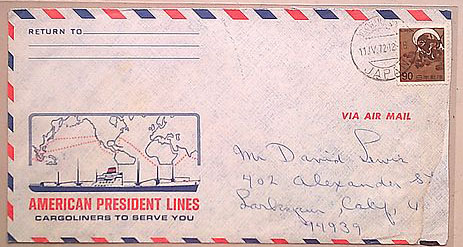 RETURN TO
11.IV.72.12
JAPAN
90
VIA AIR MAIL
Mr David
402 Alexander St
AMERICAN PRESIDENT LINES
CARGOLINERS TO SERVE YOU
94939